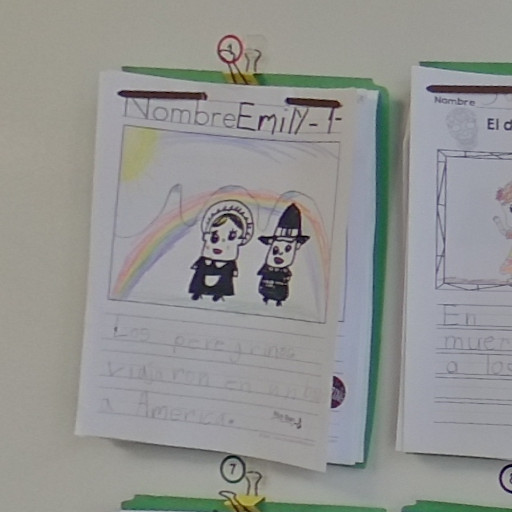 Nombre Emily-F
Los peregrinos
viajaron en
a America.
7
Nombre
El d
En
muer
a los